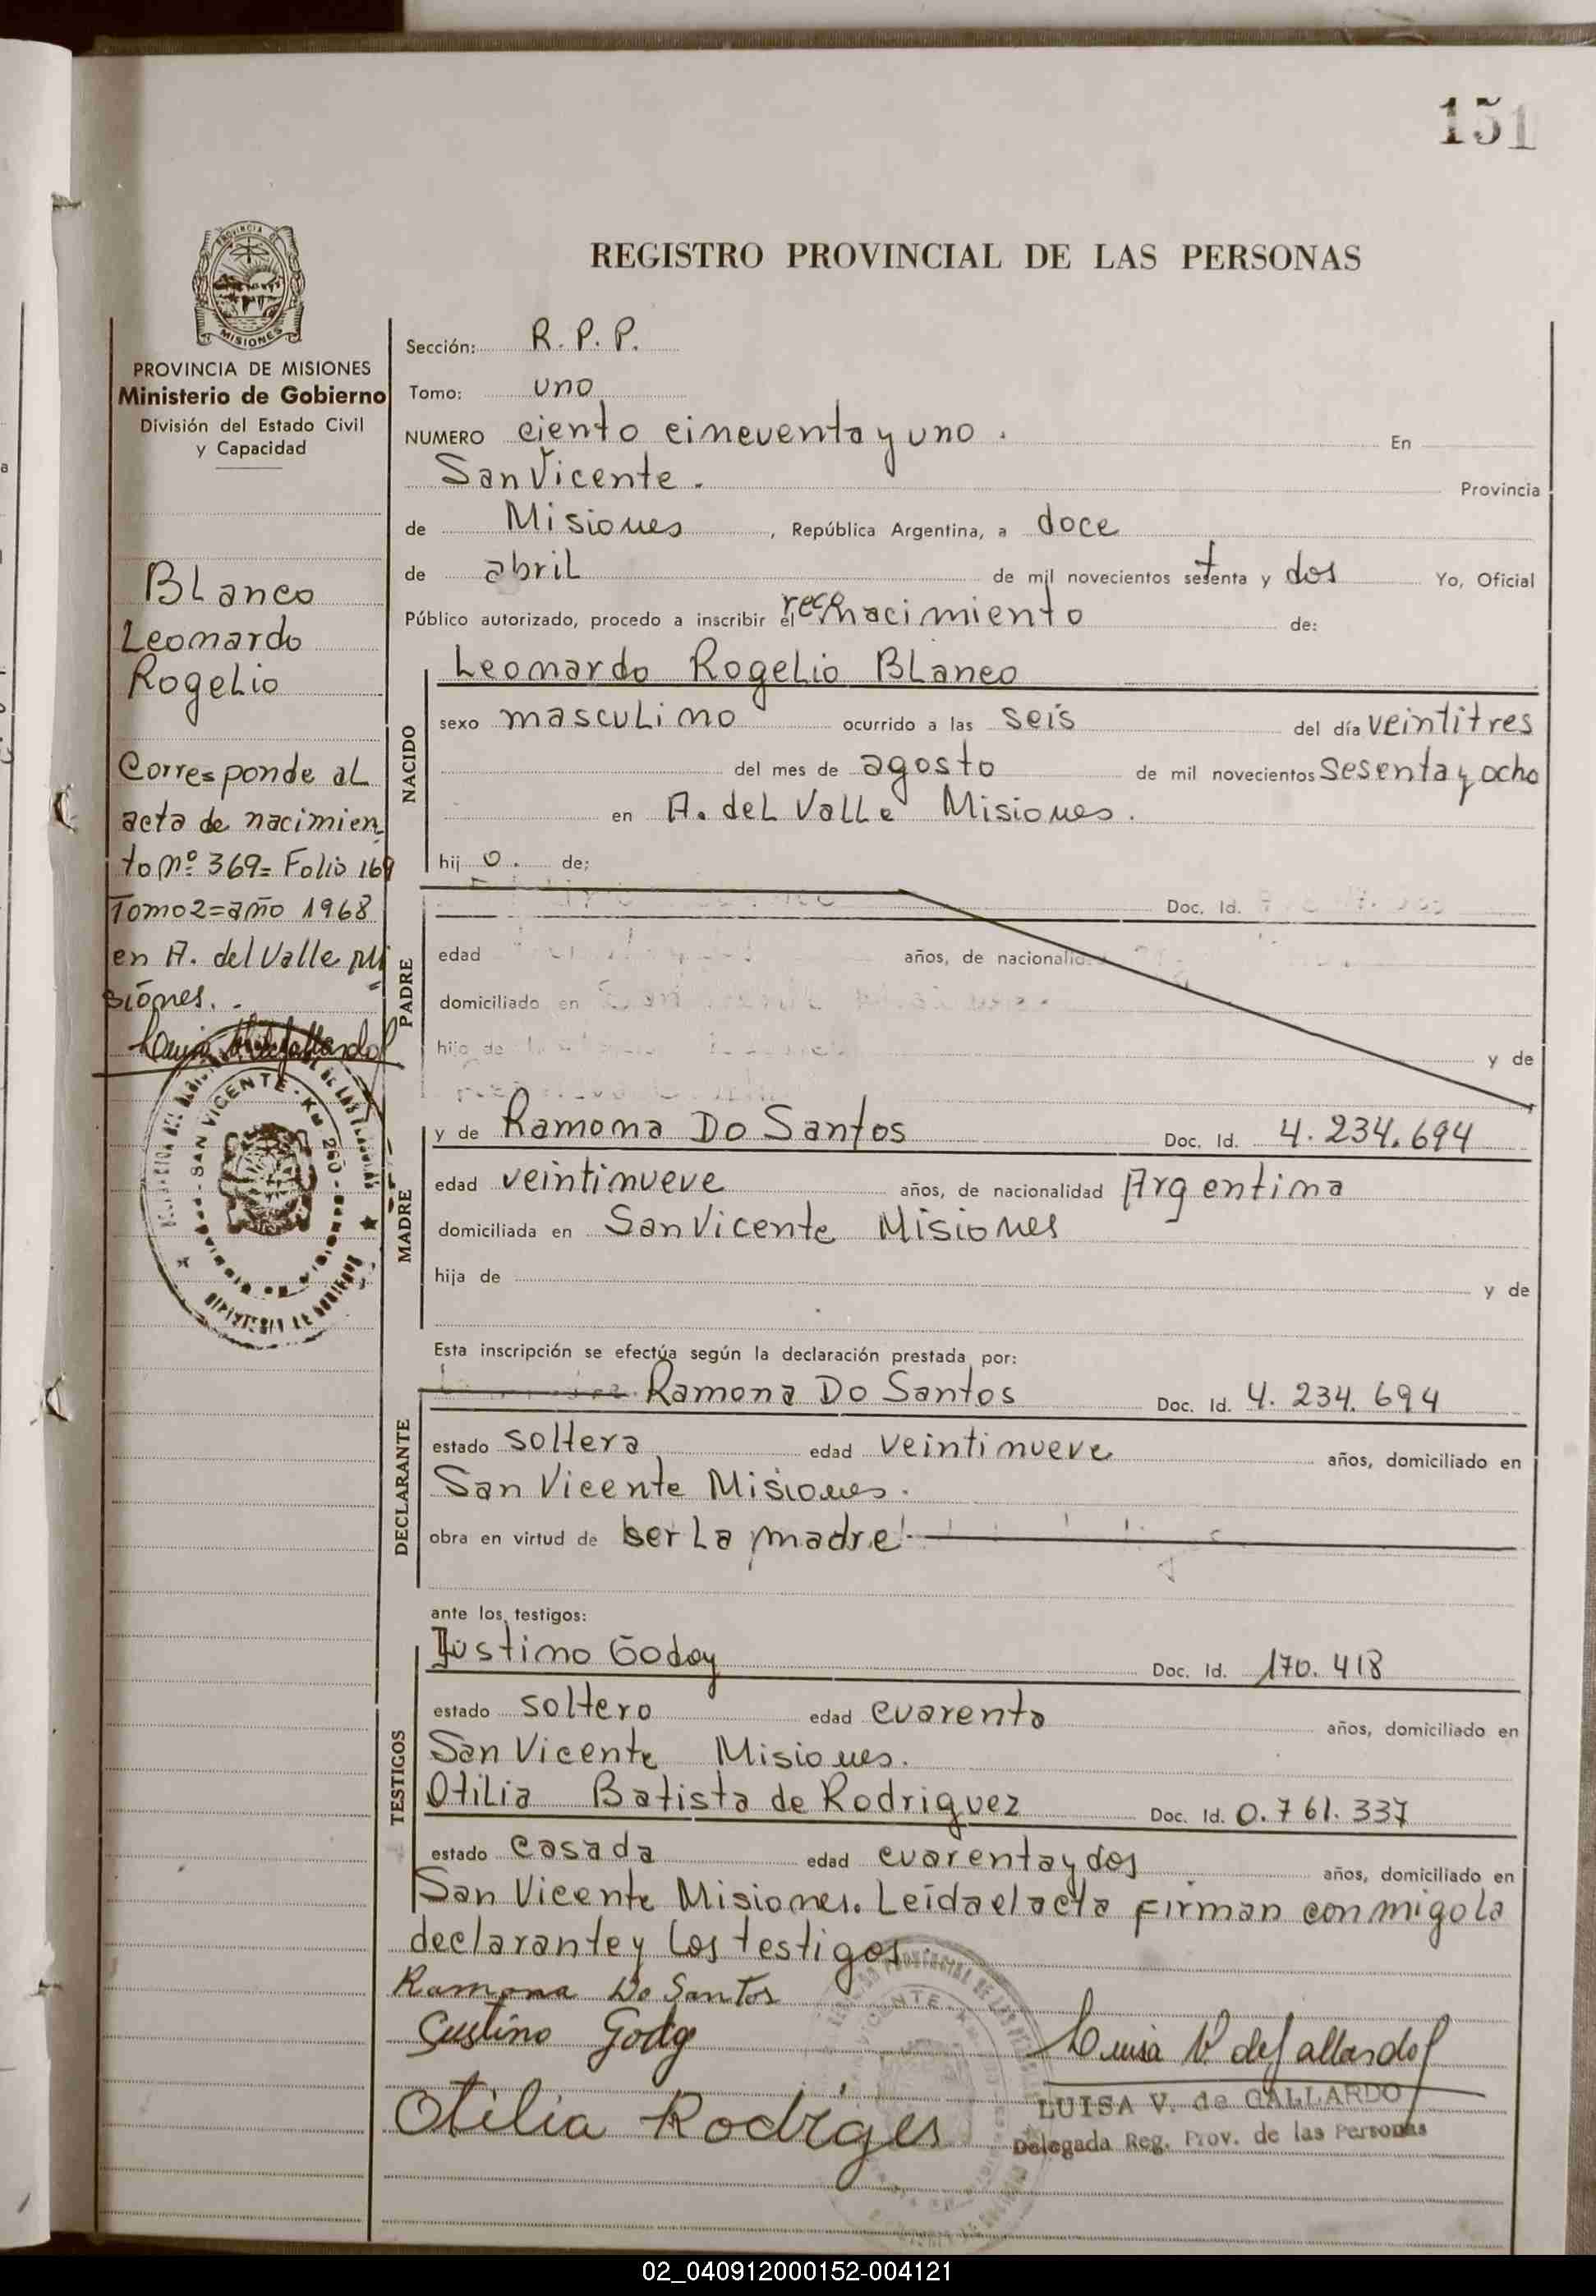 151
REGISTRO PROVINCIAL DE LAS PERSONAS
PROVINCIA DE MISIONES
Ministerio de Gobierno
División del Estado Civil
y Capacidad
Blanco
Leonardo
Rogelio
Corresponde al
acta de nacimien
to nº 369= Folio 169
Tomo 2=año 1968
en A. del Valle Mi
siones.
Sección: R. P. P.
Tomo: uno
NUMERO ciento cincuenta y uno. En
San Vicente. Provincia
de Misiones, República Argentina, a doce
de abril de mil novecientos setenta y dos Yo, Oficial
Público autorizado, procedo a inscribir el reconacimiento de:
NACIDO
Leonardo Rogelio Blanco
sexo masculino ocurrido a las seis del día veintitres
del mes de agosto de mil novecientos sesenta y ocho
en A. del Valle Misiones.
hij o. de:
PADRE
Doc. Id.
edad años, de nacionalid
domiciliado en
hijo de y de
MADRE
y de Ramona Do Santos Doc. Id. 4.234.694
edad veintinueve años, de nacionalidad Argentina
domiciliada en San Vicente Misiones
hija de y de
Esta inscripción se efectúa según la declaración prestada por:
DECLARANTE
Ramona Do Santos Doc. Id. 4.234.694
estado soltera edad veintinueve años, domiciliado en
San Vicente Misiones.
obra en virtud de ser la madre
ante los testigos:
TESTIGOS
Justino Godoy Doc. Id. 170.418
estado soltero edad cuarenta años, domiciliado en
San Vicente Misiones.
Otilia Batista de Rodriguez Doc. Id. 0.761.337
estado casada edad cuarenta y dos años, domiciliado en
San Vicente Misiones. Leida el acta firman conmigo la
declarante y los testigos.
Ramona Do Santos
Justino Godoy
Luisa V. de Gallardo
Otilia Rodriges
LUISA V. de GALLARDO
Delegada Reg. Prov. de las Personas
02_040912000152-004121